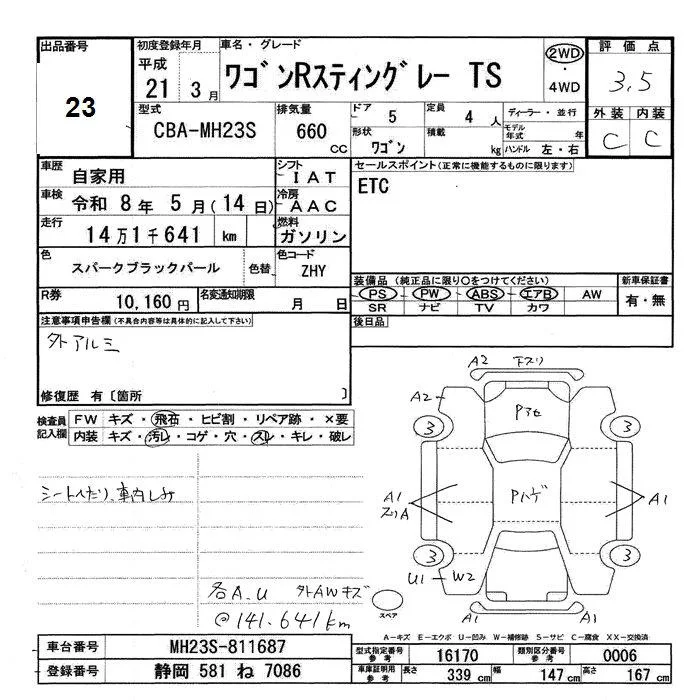 出品番号 初度登録年月 車名・グレード 評価点
23 平成 21 3月 ワゴンRスティングレー TS 2WD・4WD 3.5
型式 排気量 ドア 5 定員 4人 ディーラー・並行 外装 内装
CBA-MH23S 660cc 形状 ワゴン 積載 kg モデル年式 年 ハンドル 左・右 C C
車歴 自家用 シフト IAT セールスポイント(正常に機能するものに限ります)
車検 令和 8年 5月(14日) 冷房 AAC ETC
走行 14万1千641 km 燃料 ガソリン
色 スパークブラックパール 色替 色コード ZHY
装備品(純正品に限り○をつけてください) 新車保証書
R券 10,160円 名変通知期限 月 日 PS PW ABS エアB AW 有・無
SR ナビ TV カワ
注意事項申告欄(不具合内容等は具体的に記入して下さい) 後日品
外アルミ
修復歴 有〔箇所 〕
検査員記入欄 FW キズ・飛石・ヒビ割・リペア跡・×要
内装 キズ・汚レ・コゲ・穴・スレ・キレ・破レ
シートへたり、車内しみ
各A.U 外AWキズ
@141.641km
A2 下スリ
A2 Pアセ
3 3
A1 スリA Pハゲ A1
3 3
U1 W2
A1 A1
スペア
A-キズ E-エクボ U-凹み W-補修跡 S-サビ C-腐食 XX-交換済
車台番号 MH23S-811687 型式指定番号 参考 16170 類別区分番号 参考 0006
登録番号 静岡 581 ね 7086 車庫証明用 参考 長さ 339 cm 幅 147 cm 高さ 167 cm